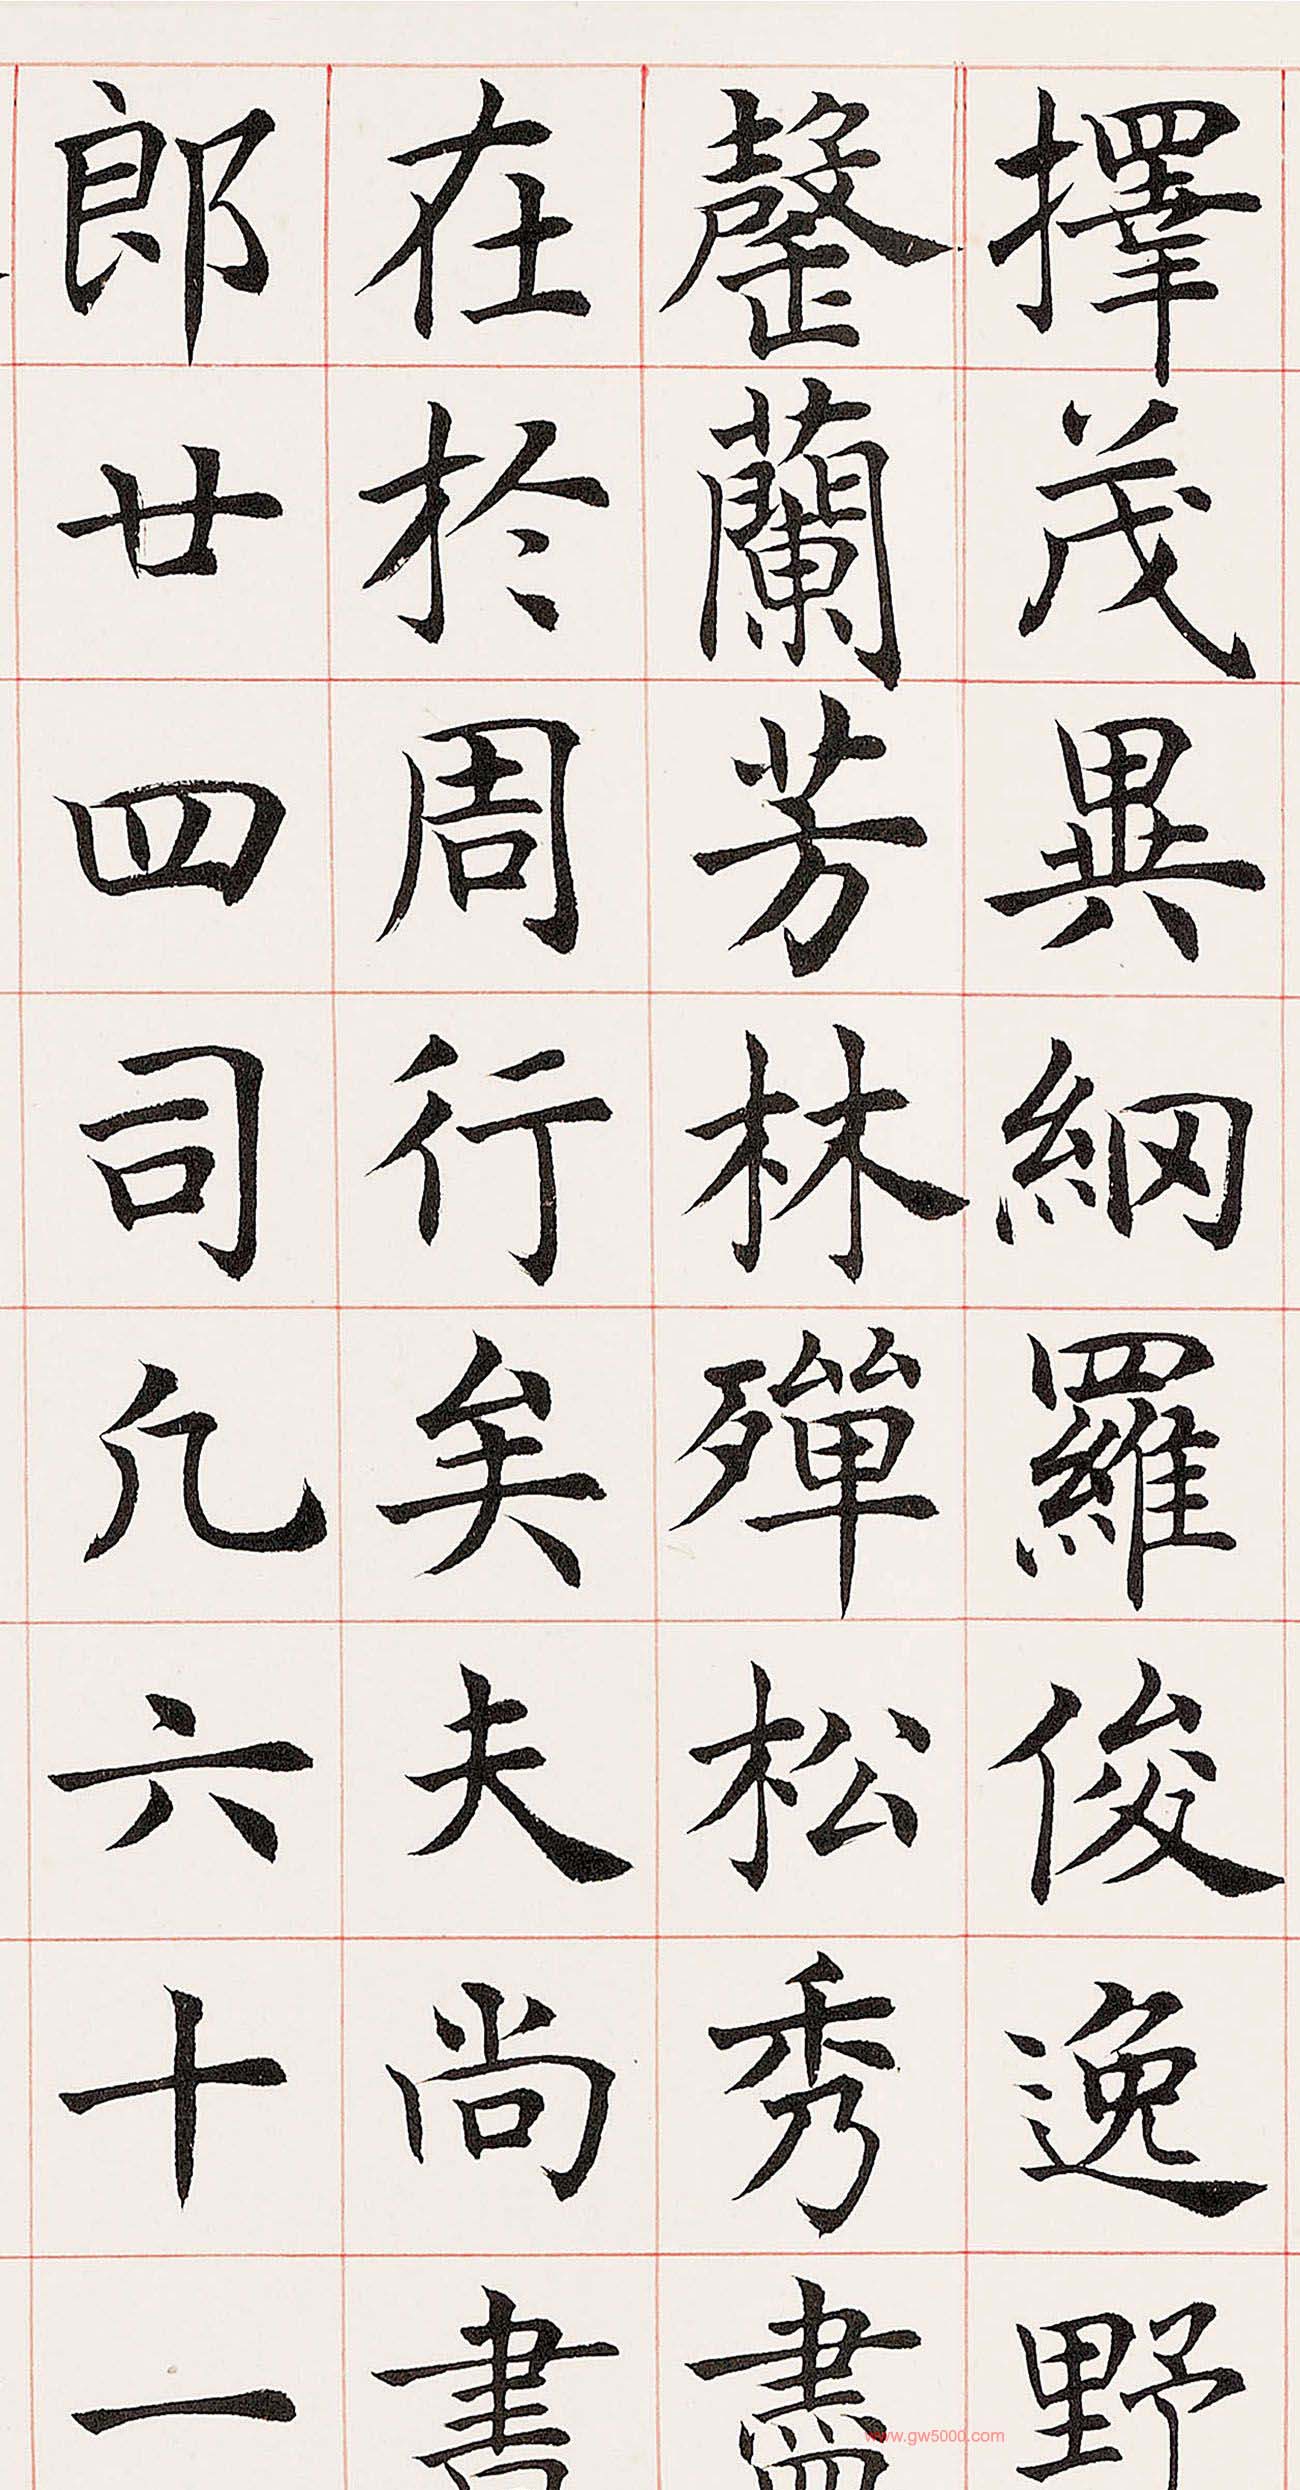 擇茂異網羅俊逸野
罄蘭芳林殫松秀盡
在於周行矣夫尚書
郎廿四司凡六十一
www.gw5000.com